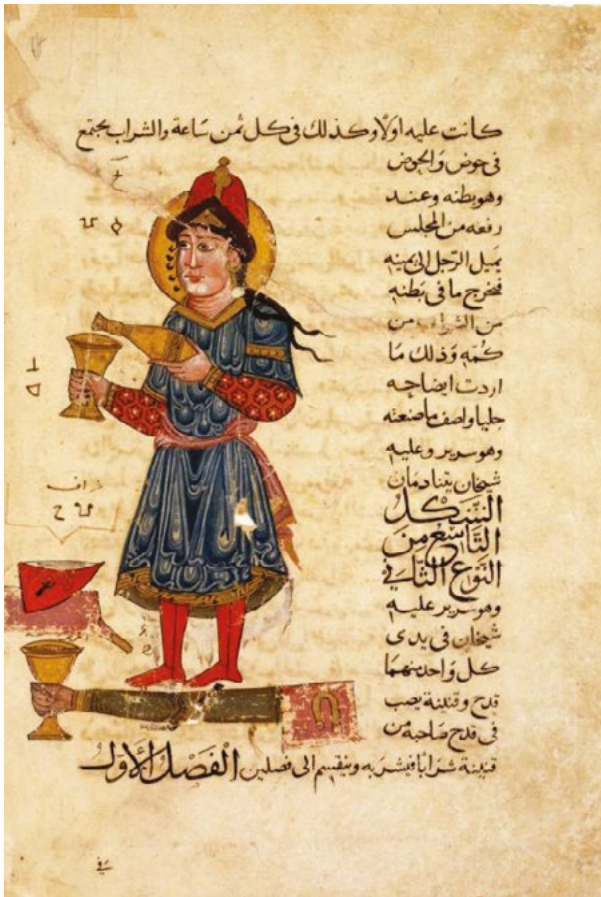 كانت عليه اولا وكذلك فى كل ثمن ساعة والشراب يجتمع
فى حوض والحوض
وهو بطنه وعند
رفعه من المجلس
يميل الرجل الى يمينه
فيخرج ما فى بطنه
من الشراب من
كمه وذلك ما
اردت ايضاحه
جليا واصف ما صنعته
وهو سرير وعليه
شيخان يتنادمان
الشكل
التاسع من
النوع الثانى
وهو سرير عليه
شيخان فى يدى
كل واحد منهما
قدح وقنينة يصب
فى قدح صاحبه من
قنينة شرابا فيشربه وينقسم الى فصلين الفصل الاول
فى